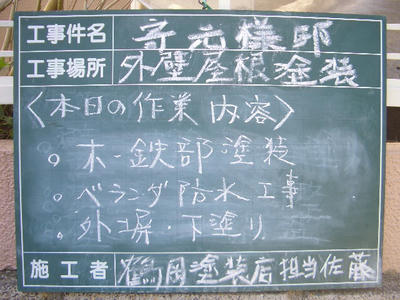 工事件名 様邸
工事場所 外壁屋根塗装
〈本日の作業内容〉
○ 木・鉄部塗装
○ ベランダ防水工事
○ 外塀・下塗り
施工者 鶴岡塗装店担当佐藤